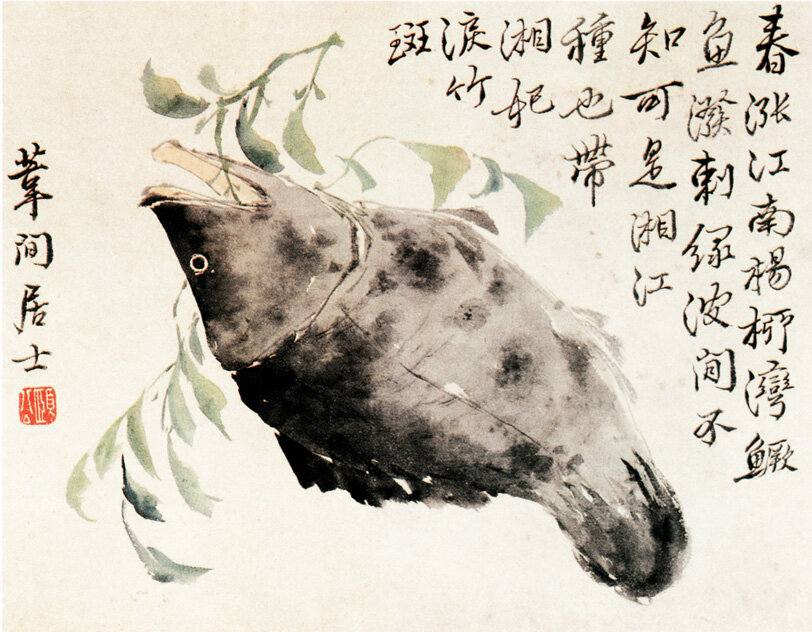 春漲江南楊柳灣鱖
鱼潑刺緑波間不
知可是湘江
種也帶
湘妃
淚竹
斑
葦間居士
頤公